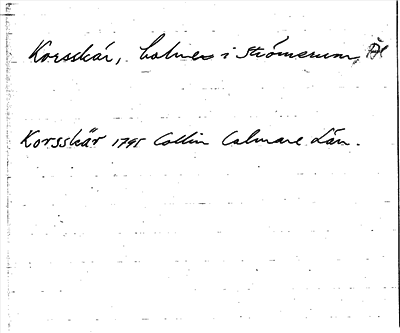 Korsskär, holmes i Strömserum,
Korsskär 1795 Collin Calmare Län.